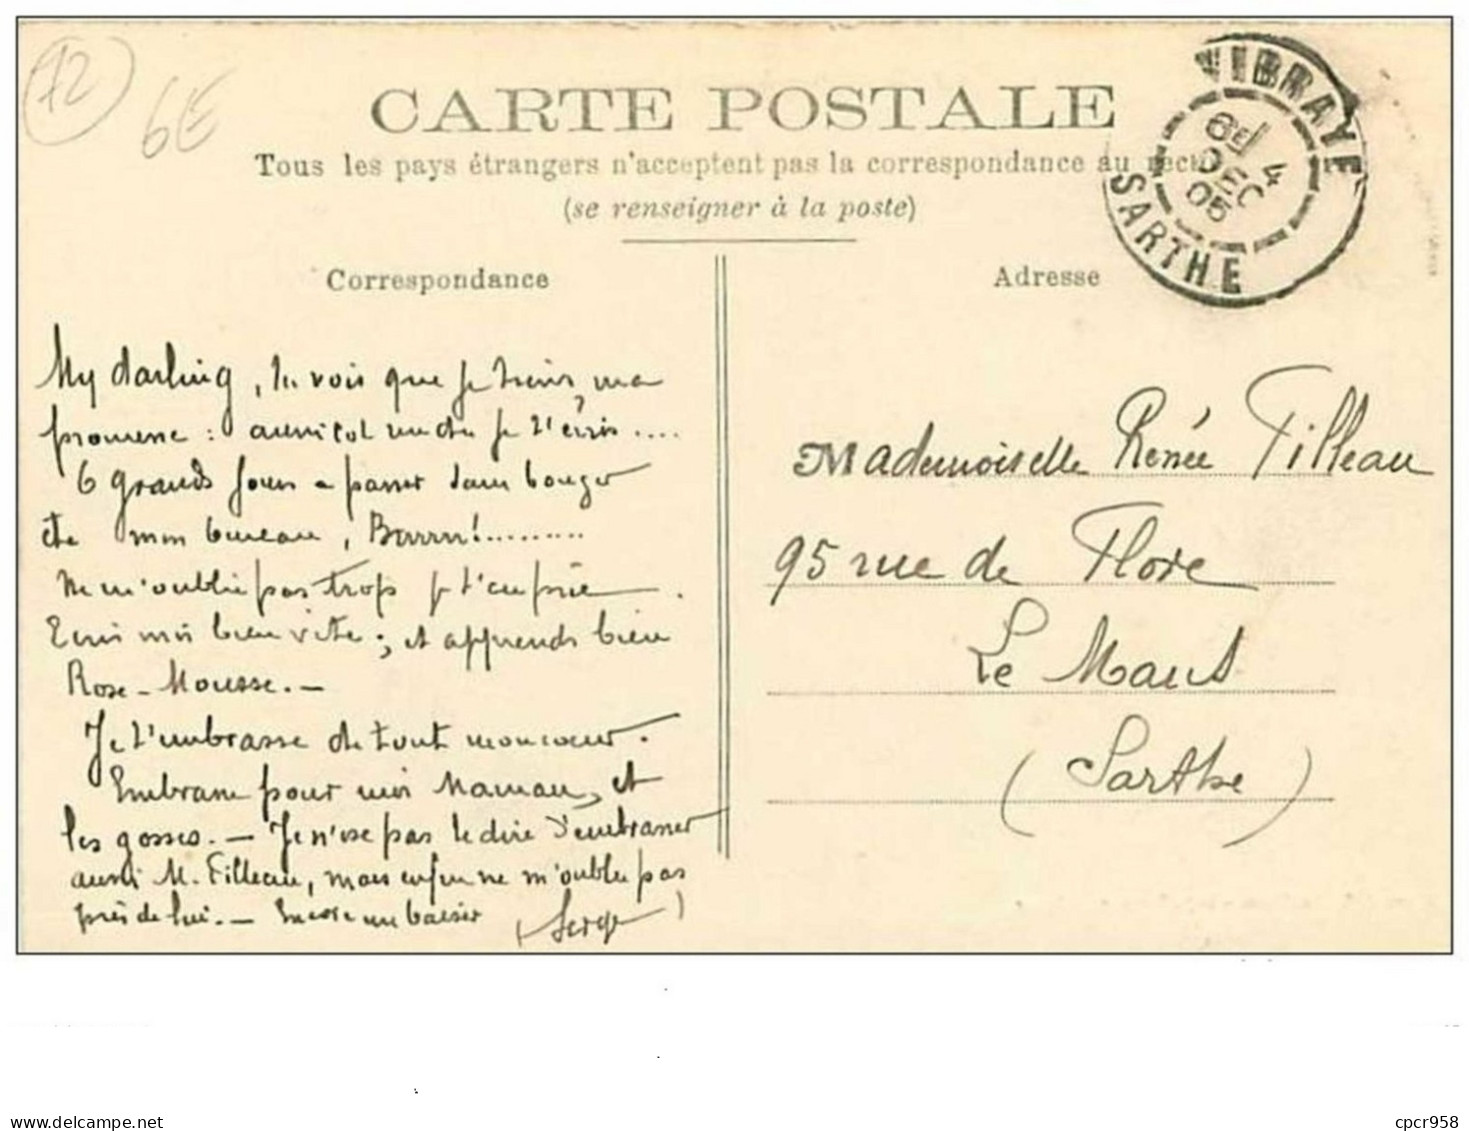 72
6E
CARTE POSTALE
Tous les pays étrangers n'acceptent pas la correspondance au recto
(se renseigner à la poste)
VIBRAYE
4
DEC
05
SARTHE
Correspondance
Adresse
My darling, tu vois que je tiens ma
promesse : aussitôt rendu je t'écris....
6 grands jours à passer sans bouger
de mon bureau, Brrrr!........
Ne m'oublie pas trop je t'en prie.
Ecris moi bien vite; et apprends bien
Rose-Mousse.-
Je t'embrasse de tout mon cœur.
Embrasse pour moi Maman, et
les gosses. - Je n'ose pas te dire d'embrasser
aussi M. Filleau, mais enfin ne m'oublie pas
près de lui. - Encore un baiser
(Serge)
Mademoiselle Renée Filleau
95 rue de Flore
Le Mans
(Sarthe)
cpcr958